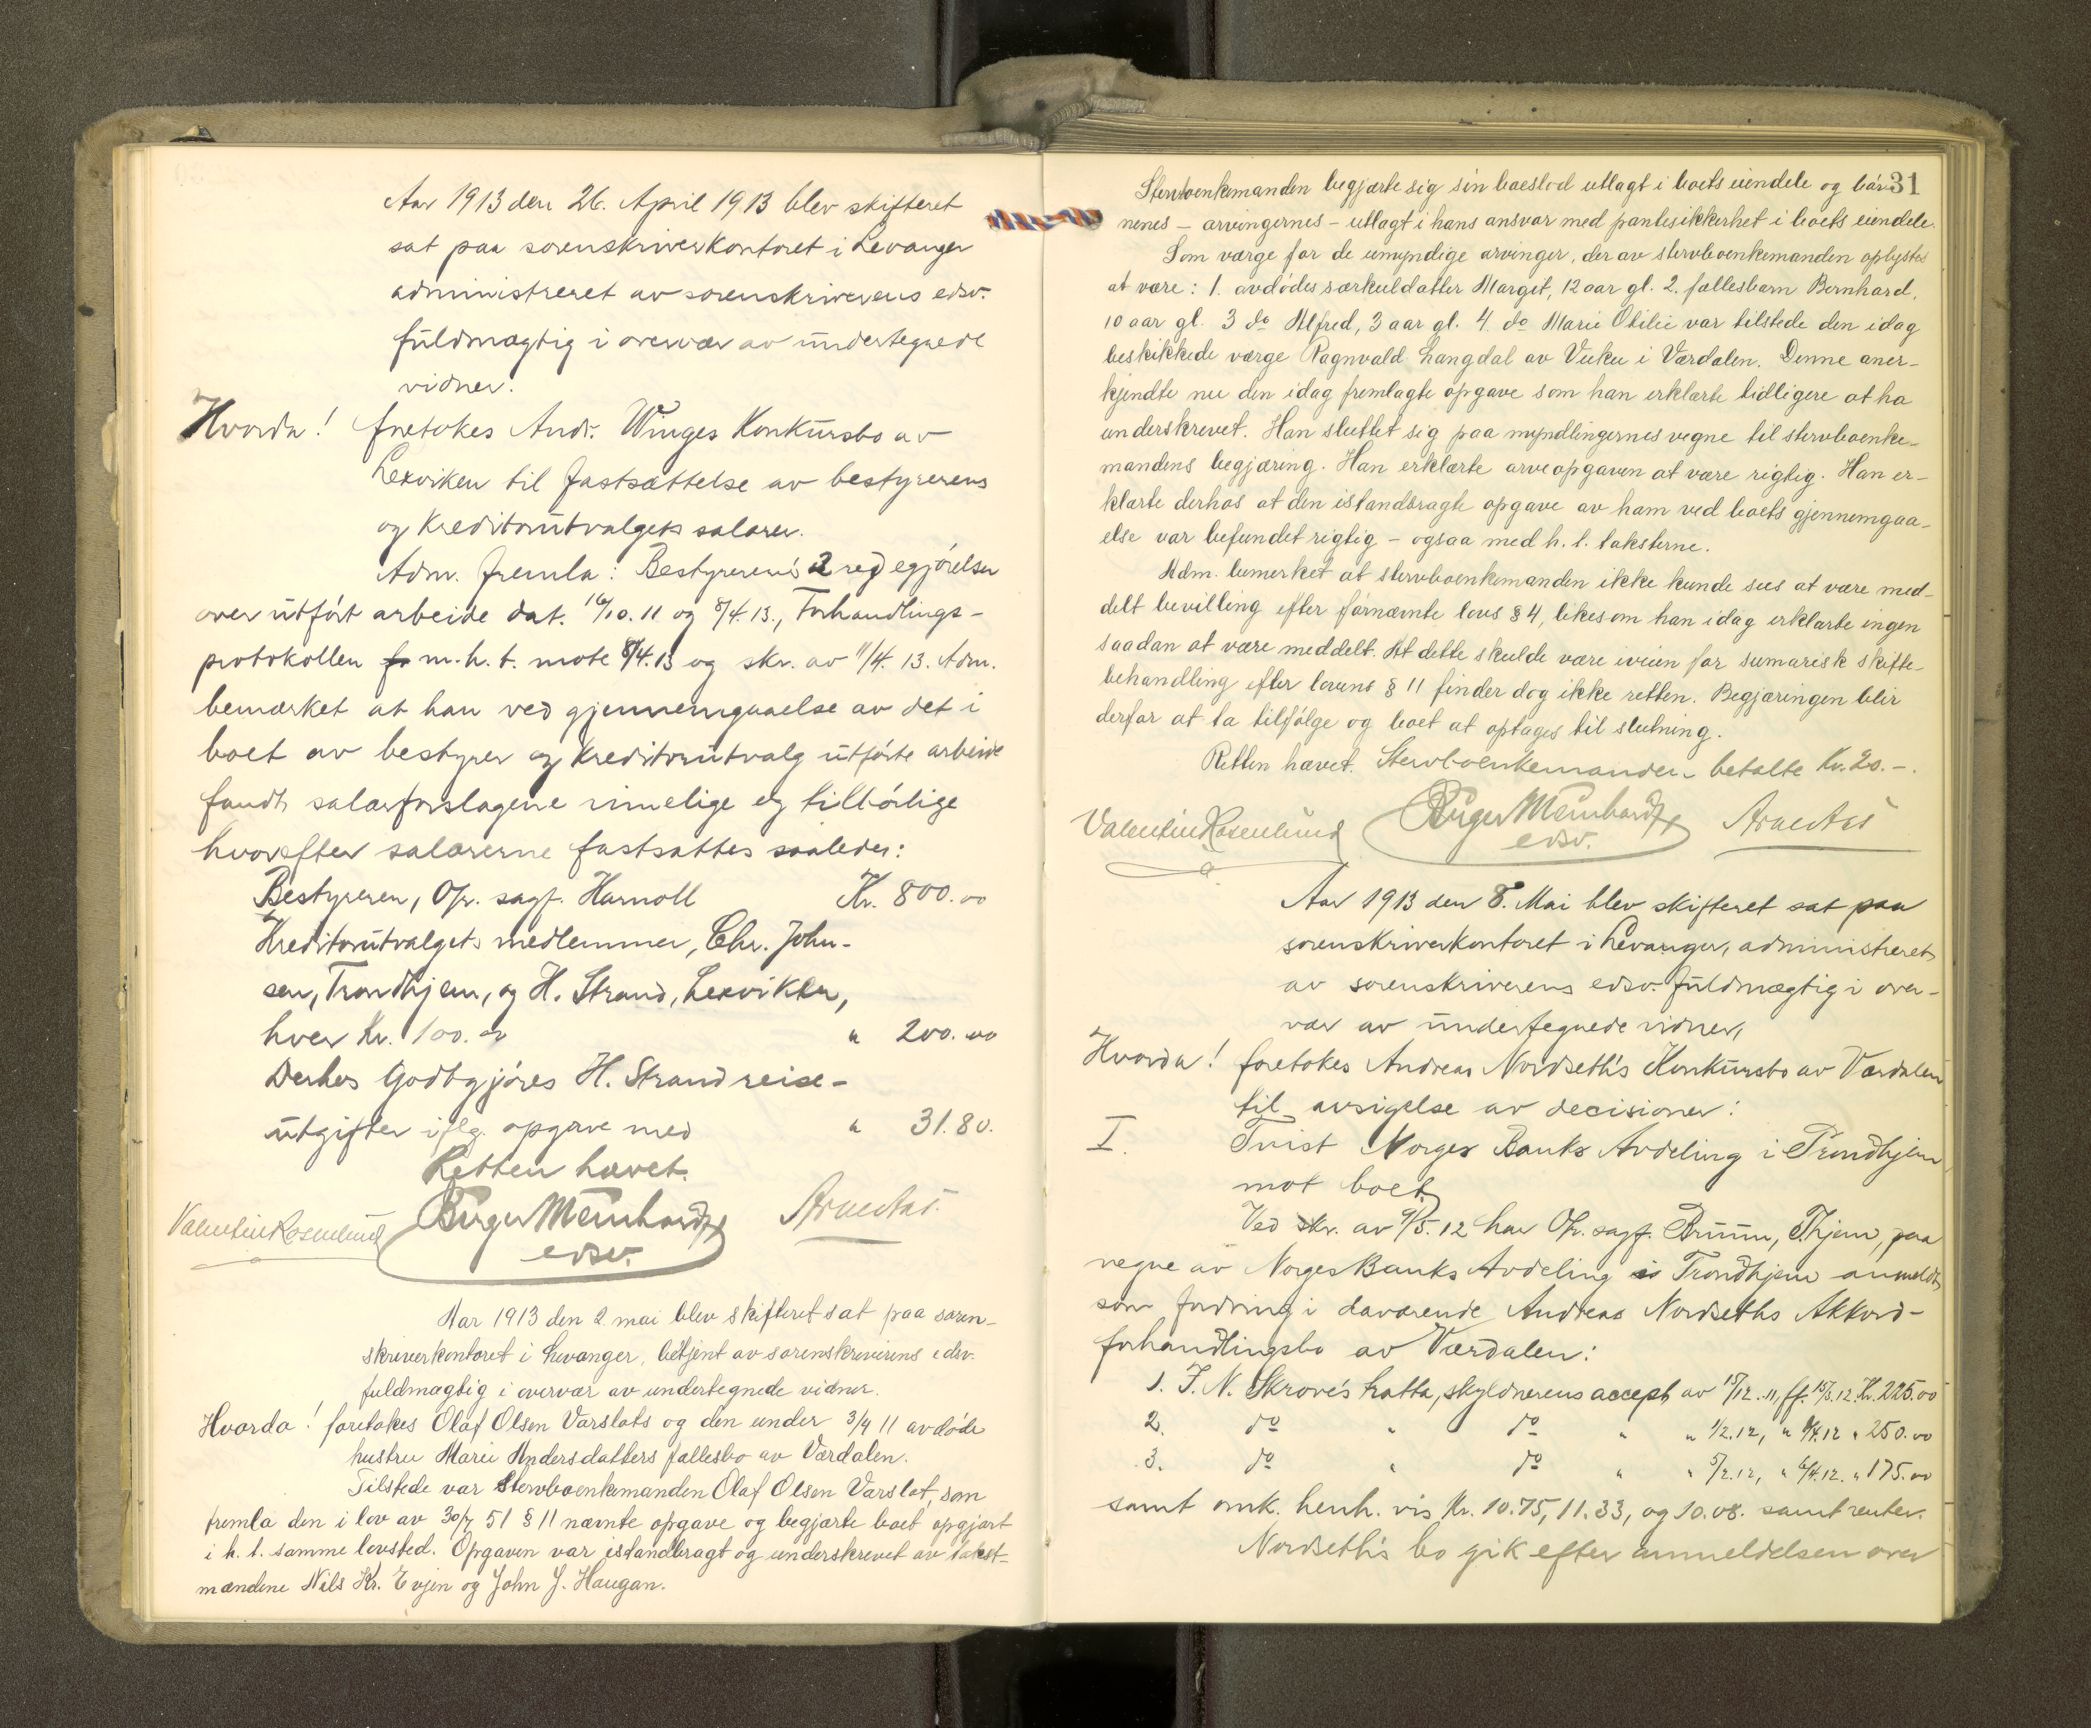 Aar 1913 den 26. April 1913 blev skifteret
sat paa sorenskriverkontoret i Levanger
administreret av sorenskriverens edsv.
fuldmægtig i overvær av undertegnede
vidner.
Hvorda! foretokes Andr. Winges Konkursbo av
Lexviken til fastsættelse av bestyrerens
og Kreditorutvalgets salærer.
Adm. fremla: Bestyrerens 2 redegjørelser
over utført arbeide dat. 16/10.11 og 8/4.13., Forhandlings-
protokollen m.h.t. møte 8/4.13 og skr. av 11/4.13. Adm.
bemærket at han ved gjennemgaaelse av det i
boet av bestyrer og Kreditorutvalg utførte arbeide
fandt salærforslagene rimelige og tilbørlige
hvorefter salærerne fastsattes saaledes:
Bestyreren, Or. sagf. Harnoll Kr. 800.00
Kreditorutvalgets medlemmer, Chr. John-
sen, Trondhjem, og H. Strand, Lexviken,
hver Kr. 100.00 " 200.00
Derhos Godtgjøres H. Strand reise-
utgifter iflg. opgave med " 31.80.
Retten hævet.
Valentin Rosenlund Birger Meinhardt Arne Aas
edsv.
Aar 1913 den 2. mai blev skifteret sat paa soren-
skriverkontoret i Levanger, betjent av sorenskriverens edsv.
fuldmægtig i overvær av undertegnede vidner.
Hvorda! foretokes Olaf Olsen Varslots og den under 3/4 11 avdøde
hustru Marie Andersdatters fællesbo av Værdalen.
Tilstede var Stervboenkemanden Olaf Olsen Varslot, som
fremla den i lov av 30/7 51 § 11 nævnte opgave og begjærte boet opgjort
i h. t. samme lovsted. Opgaven var istandbragt og underskrevet av takst-
mændene Nils Kr. Evjen og John J. Haugan.
31
Stervboenkemanden begjærte sig sin boeslod utlagt i boets eiendele og bør-
nenes - arvingernes - utlagt i hans ansvar med pantesikkerhet i boets eiendele.
Som værge for de umyndige arvinger, der av stervboenkemanden oplystes
at være: 1. avdødes særkuldatter Margit, 12 aar gl. 2. fællesbarn Bernhard,
10 aar gl. 3 do Alfred, 3 aar gl. 4. do Marie Otilie var tilstede den idag
beskikkede værge Ragnvald Langdal av Vuku i Værdalen. Denne aner-
kjendte nu den idag fremlagte opgave som han erklærte tidligere at ha
underskrevet. Han sluttet sig paa myndlingernes vegne til stervboenke-
mandens begjæring. Han erklærte arveopgaven at være rigtig. Han er-
klærte derhos at den istandbragte opgave av ham ved boets gjennemgaa-
else var befundet rigtig - ogsaa med h. t. taksterne.
Adm. bemerket at stervboenkemanden ikke kunde sees at være med-
delt bevilling efter førnævnte lovs § 4, likesom han idag erklærte ingen
saadan at være meddelt. At dette skulde være iveien for sumarisk skifte-
behandling efter lovens § 11 finder dog ikke retten. Begjæringen blir
derfor at ta tilfølge og boet at optages til slutning.
Retten hævet. Stervboenkemanden betalte Kr. 20.-.
Valentin Rosenlund Birger Meinhardt Arne Aas
edsv.
Aar 1913 den 8. Mai blev skifteret sat paa
sorenskriverkontoret i Levanger, administreret
av sorenskriverens edsv. fuldmægtig i over-
vær av undertegnede vidner,
Hvorda! foretokes Andreas Nordseth's Konkursbo av Værdalen
til avsigelse av decisioner:
I. Tvist Norges Banks Avdeling i Trondhjem
mot boet.
Ved skr. av 9/5.12 har Or. sagf. Bruun, Thjem, paa
vegne av Norges Banks Avdeling i Trondhjem anmeldt
som fordring i daværende Andreas Nordseths Akkord-
forhandlingsbo av Værdalen:
1. J. N. Skrove's tratta, skyldnerens accept av 15/12.11, ff. 15/3.12. Kr. 225.00
2. do " do " " 1/2.12, " 1/4.12 " 250.00
3. do " do " " 5/2.12, " 6/4.12. " 175.00
samt omk. henh. vis Kr. 10.75, 11.33, og 10.08. samt renter.
Nordseth's bo gik efter anmeldelsen over